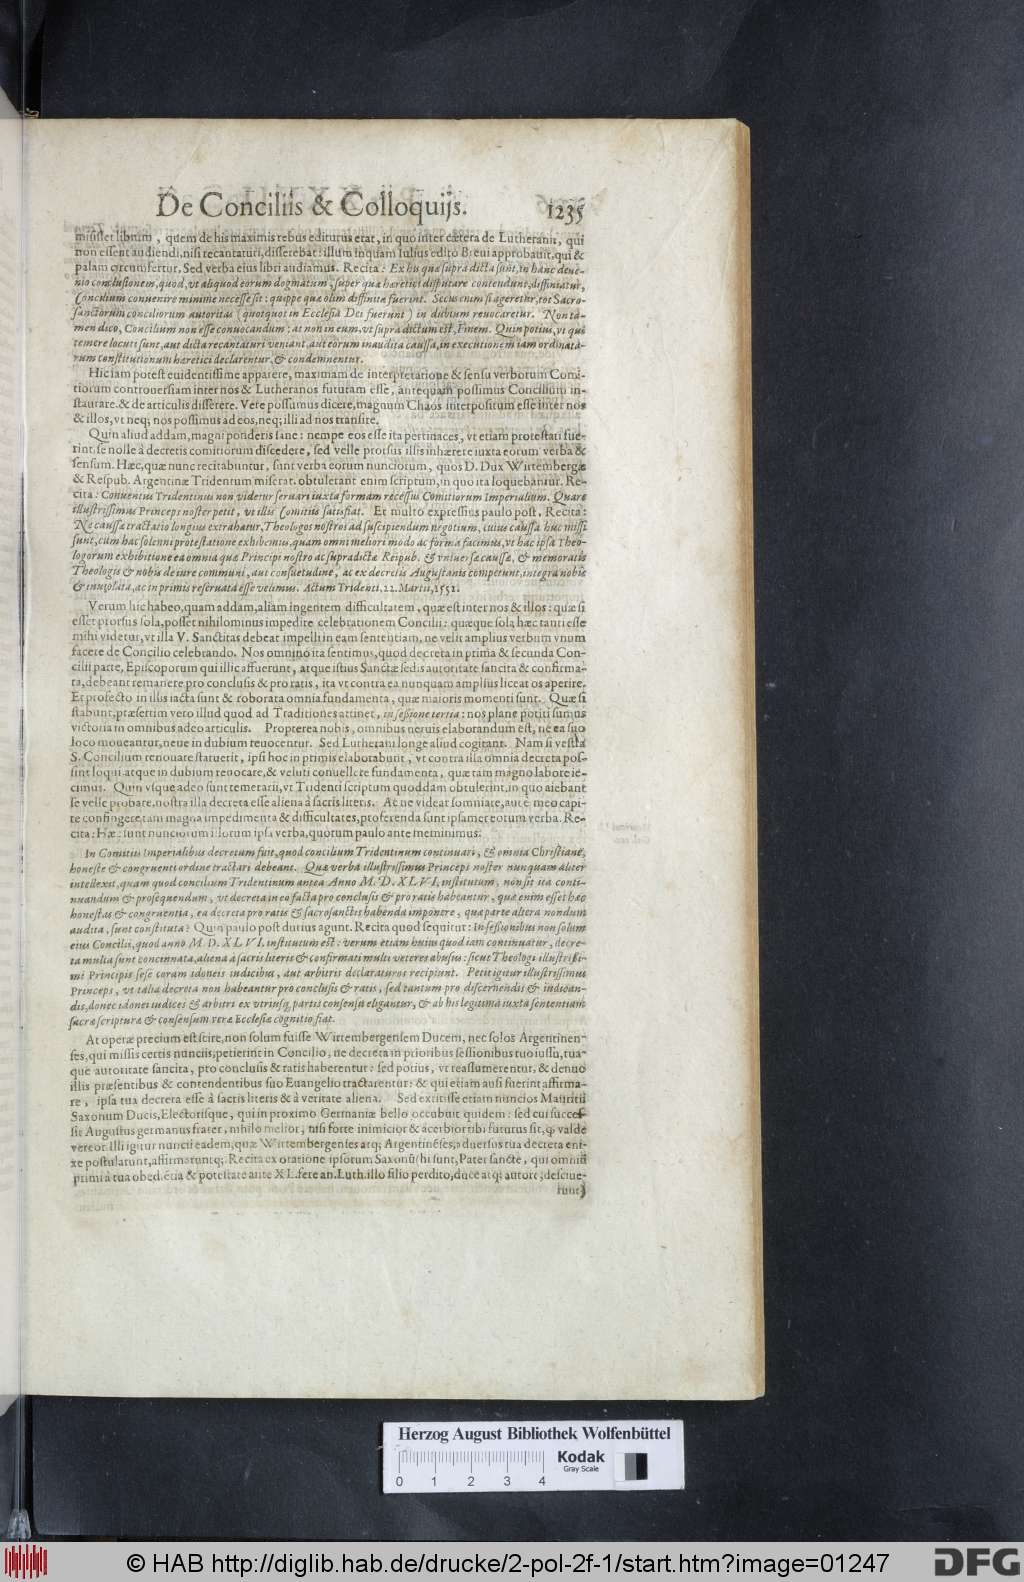 De Conciliis & Colloquijs. 1235
misisset librum, quem de his maximis rebus editurus erat, in quo inter cætera de Lutheranis, qui
non essent audiendi, nisi recantaturi, disserebat: illum inquam Iulius edito Breui approbauit, qui &
palam circumfertur. Sed verba eius libri audiamus. Recita: Ex his quæ supra dicta sunt, in hanc deue-
nio conclusionem, quod, vt aliquod eorum dogmatum, super quæ hæretici disputare contendunt, diffiniatur,
Concilium conuenire minime necesse sit: quippe quæ olim diffinita fuerint. Secus enim si ageretur, tot Sacro-
sanctorum conciliorum autoritas (quotquot in Ecclesia Dei fuerunt) in dubium reuocaretur. Non ta-
men dico, Concilium non esse conuocandum: at non in eum, vt supra dictum est, finem. Quin potius, vt qui
temere locuti sunt, aut dicta recantaturi veniant, aut eorum inaudita caussa, in executionem iam ordinata-
rum constitutionum hæretici declarentur, & condemnentur.
Hic iam potest euidentissime apparere, maximam de interpretatione & sensu verborum Comi-
tiorum controuersiam inter nos & Lutheranos futuram esse, antequam possimus Concilium in-
staurare. & de articulis disserere. Vere possumus dicere, magnum Chaos interpositum esse inter nos
& illos, vt neq; nos possimus ad eos, neq; illi ad nos transire.
Quin aliud addam, magni ponderis sane: nempe eos esse ita pertinaces, vt etiam protestati fue-
rint, se nolle à decretis comitiorum discedere, sed velle prorsus illis inhærere iuxta eorum verba &
sensum. Hæc, quæ nunc recitabuntur, sunt verba eorum nunciorum, quos D. Dux Wirtembergæ
& Respub. Argentinæ Tridentum miserat. obtulerant enim scriptum, in quo ita loquebantur. Re-
cita: Conuentus Tridentinus non videtur seruari iuxta formam recessus Comitiorum Imperialium. Quare
illustrissimus Princeps noster petit, vt illis Comitiis satisfiat. Et multo expressius paulo post. Recita:
Ne caussæ tractatio longius extrahatur, Theologos nostros ad suscipiendum negotium, cuius caussa huc missi
sunt, cum hac solenni protestatione exhibemus, quam omni meliori modo ac forma facimus, vt hac ipsa Theo-
logorum exhibitione ea omnia quæ Principi nostro ac supradictæ Reipub. & vniuersæ caussæ, & memoratis
Theologis & nobis de iure communi, aut consuetudine, ac ex decretis Augustanis competunt, integra nobis
& inuiolata, ac in primis reseruata esse velimus. Actum Tridenti, 22. Martii, 1552.
Verum hic habeo, quam addam, aliam ingentem difficultatem, quæ est inter nos & illos: quæ si
esset prorsus sola, posset nihilominus impedire celebrationem Concilii: quæque sola hæc tanti esse
mihi videtur, vt illa V. Sanctitas debeat impelli in eam sententiam, ne velit amplius verbum vnum
facere de Concilio celebrando. Nos omnino ita sentimus, quod decreta in prima & secunda Con-
cilii parte, Episcoporum qui illic affuerunt, atque istius Sanctæ sedis autoritate sancita & confirma-
ta, debeant remanere pro conclusis & pro ratis, ita vt contra ea nunquam amplius liceat os aperire.
Et profecto in illis iacta sunt & roborata omnia fundamenta, quæ maioris momenti sunt. Quæ si
stabunt, præsertim vero illud quod ad Traditiones attinet, in sessione tertia: nos plane potiti sumus
victoria in omnibus adeo articulis. Propterea nobis, omnibus neruis elaborandum est, ne ea suo
loco moueantur, neue in dubium reuocentur. Sed Lutherani longe aliud cogitant. Nam si vestra
S. Concilium renouare statuerit, ipsi hoc in primis elaborabunt, vt contra illa omnia decreta pos-
sint loqui atque in dubium reuocare, & veluti conuellere fundamenta, quæ tam magno labore ie-
cimus. Quin vsque adeo sunt temerarii, vt Tridenti scriptum quoddam obtulerint, in quo aiebant
se velle probare, nostra illa decreta esse aliena à sacris literis. At ne videar somniare, aut è meo capi-
te confingere tam magna impedimenta & difficultates, proferenda sunt ipsamet eorum verba. Re-
cita: Hæc sunt nunciorum illorum ipsa verba, quorum paulo ante meminimus:
In Comitiis Imperialibus decretum fuit, quod concilium Tridentinum continuari, & omnia Christiane,
honeste & congruenti ordine tractari debeant. Quæ verba illustrissimus Princeps noster nunquam aliter
intellexit, quam quod concilium Tridentinum antea Anno M. D. XLVI. institutum, non sit ita conti-
nuandum & prosequendum, vt decreta in eo facta pro conclusis & pro ratis habeantur, quæ enim esset hæc
honestas & congruentia, ea decreta pro ratis & sacrosanctis habenda imponere, quæ parte altera nondum
audita, sunt constituta? Quin paulo post durius agunt. Recita quod sequitur: In sessionibus non solum
eius Concilii, quod anno M. D. XLVI. institutum est: verum etiam huius quod iam continuatur, decre-
ta multa sunt concinnata, aliena à sacris literis & confirmati multi veteres abusus: sicut Theologi illustrissi-
mi Principis sese coram idoneis iudicibus, aut arbitris declaraturos recipiunt. Petit igitur illustrissimus
Princeps, vt talia decreta non habeantur pro conclusis & ratis, sed tantum pro discernendis & indican-
dis, donec idonei iudices & arbitri ex vtriusq; partis consensu eligantur, & ab his legitima iuxta sententiam
sacræ scripturæ & consensum veræ Ecclesiæ cognitio fiat.
At operæ precium est scire, non solum fuisse Wirtembergensem Ducem, nec solos Argentinen-
ses, qui missis certis nunciis, petierint in Concilio, ne decreta in prioribus sessionibus tuo iussu, tua-
que autoritate sancita, pro conclusis & ratis haberentur: sed potius, vt reassumerentur, & denuo
illis præsentibus & contendentibus suo Euangelio tractarentur: & qui etiam ausi fuerint affirma-
re, ipsa tua decreta esse à sacris literis & à veritate aliena. Sed extitisse etiam nuncios Mauritii
Saxonum Ducis, Electorisque, qui in proximo Germaniæ bello occubuit quidem: sed cui succes-
sit Augustus germanus frater, nihilo melior, nisi forte inimicior & acerbior tibi futurus sit, q; valde
vereor. Illi igitur nuncii eadem, quæ Wirtembergenses atq; Argentinēses, aduersus tua decreta eni-
xe postularunt, affirmaruntq;. Recita ex oratione ipsorum Saxonū: hi sunt, Pater sancte, qui omniū
primi à tua obediētia & potestate ante XL. fere an. Luth. illo filio perdito, duce atq; autore, desciue-
runt)
Herzog August Bibliothek Wolfenbüttel
Kodak
Gray Scale
0 1 2 3 4
© HAB http://diglib.hab.de/drucke/2-pol-2f-1/start.htm?image=01247
DFG